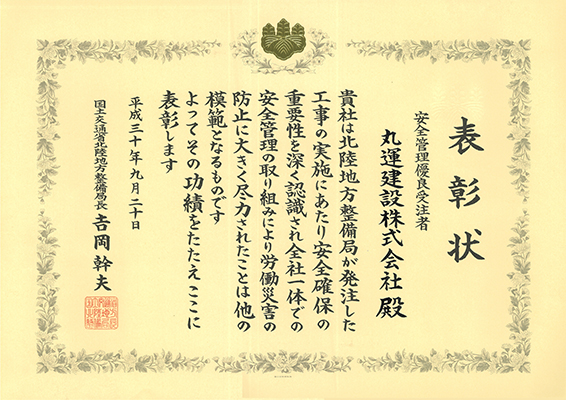 表彰状
安全管理優良受注者
丸運建設株式会社 殿
貴社は北陸地方整備局が発注した
工事の実施にあたり安全確保の
重要性を深く認識され全社一体での
安全管理の取り組みにより労働災害の
防止に大きく尽力されたことは他の
模範となるものです
よってその功績をたたえここに
表彰します
平成三十年九月二十日
国土交通省北陸地方整備局長 吉岡幹夫